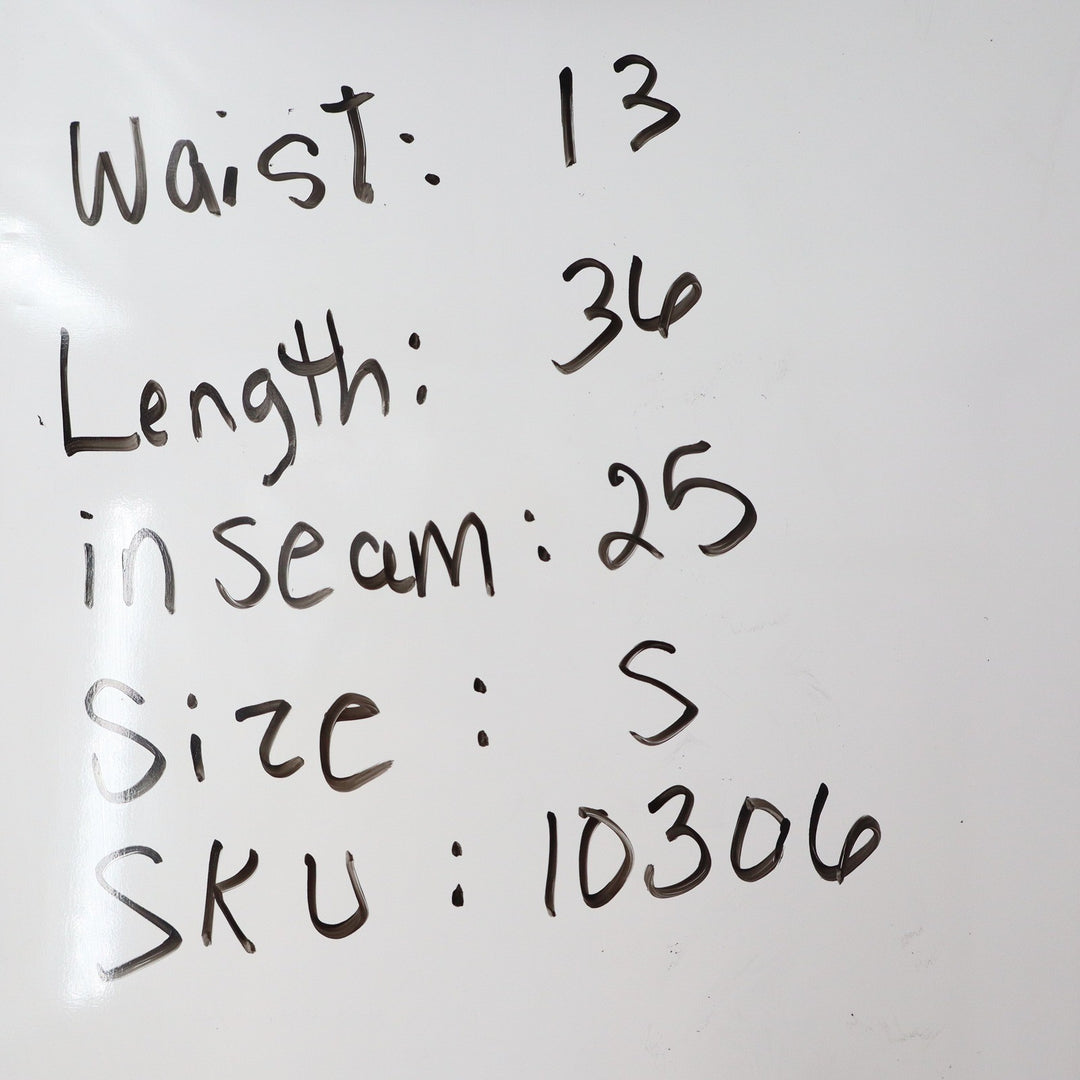 Waist: 13
Length: 36
inseam: 25
Size: S
SKU: 10306